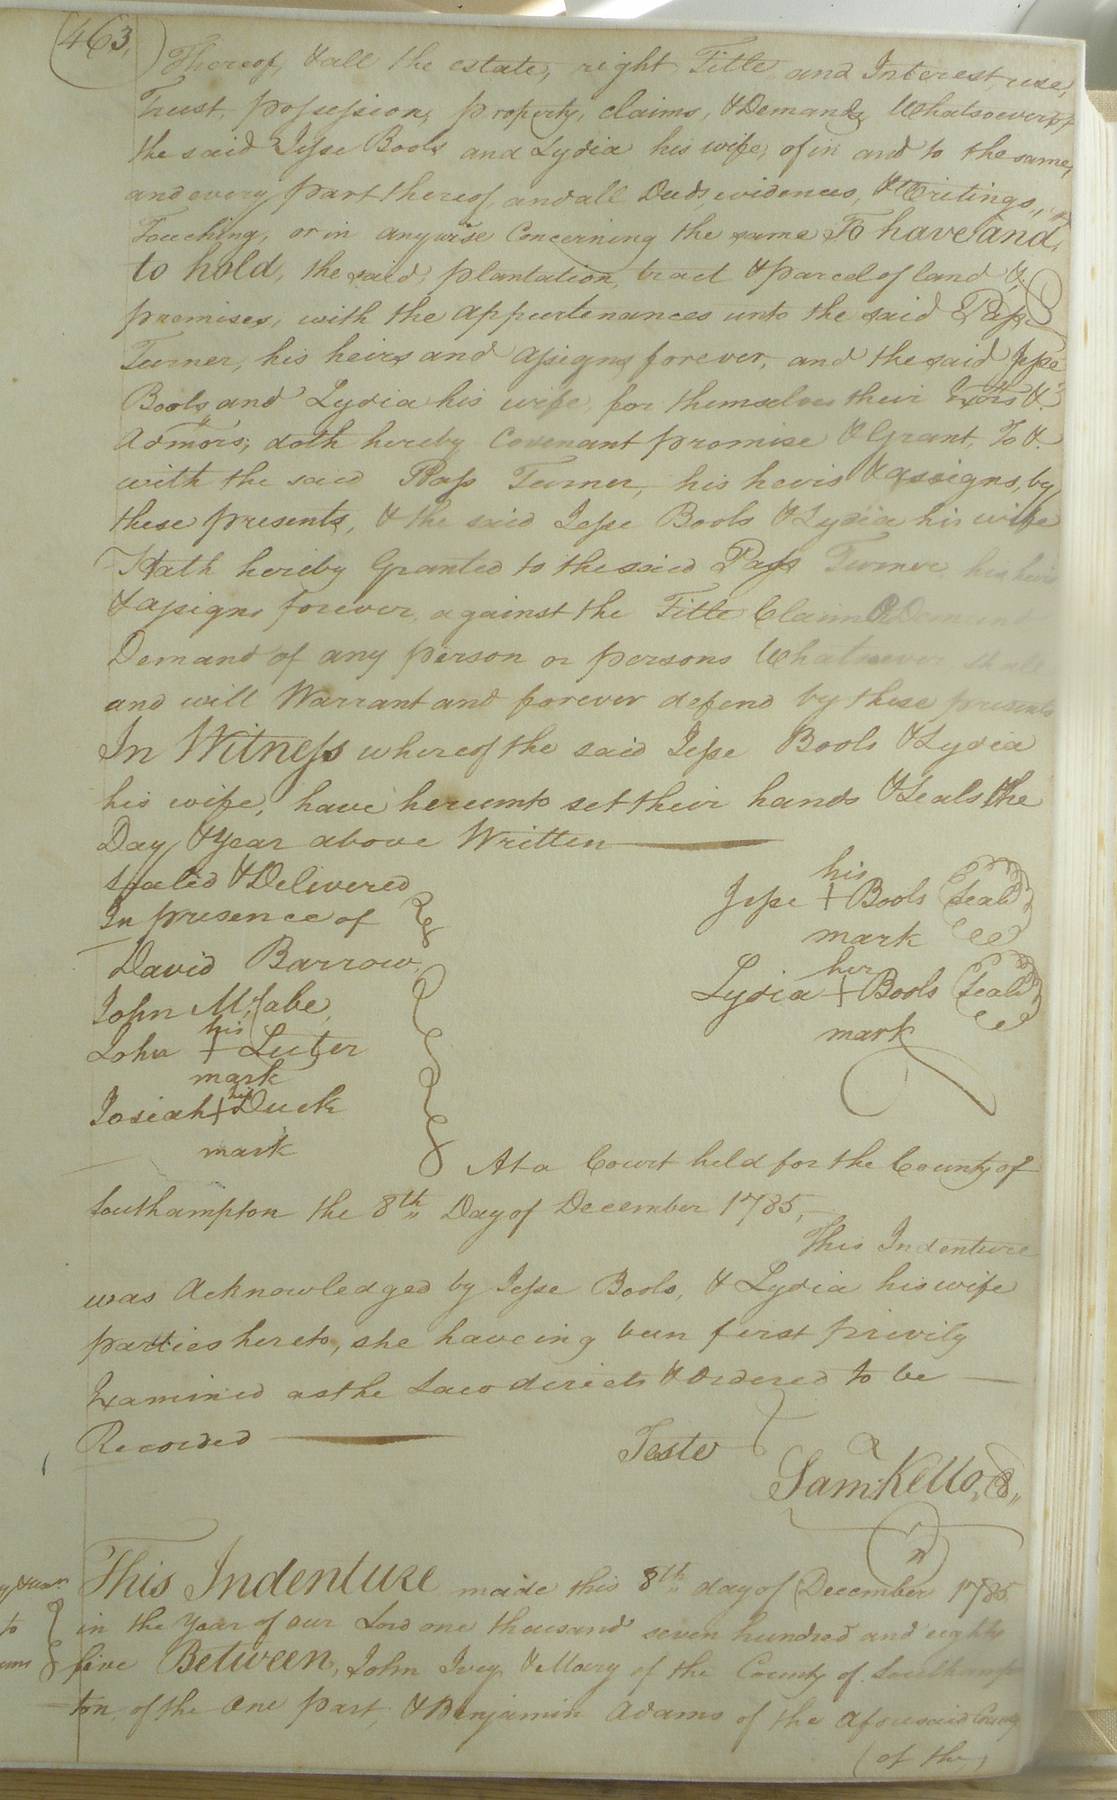 463,
Thereof, & all the estate, right Title and Interest, use,
Trust, possession, property, claims, & Demands Whatsoever of
the said Jesse Bools and Lydia his wife, of in and to the same,
and every part thereof, and all Deeds, evidences, & Writings,
Touching, or in anywise Concerning the same To have and
to hold, the said plantation, tract & parcel of land &
premises, with the appurtenances unto the said Pass
Turner, his heirs and assigns forever, and the said Jesse
Bools, and Lydia his wife, for themselves their Exors &
Admors, doth hereby Covenant promise & Grant, To &
with the said Pass Turner, his heirs & assigns, by
these presents, & the said Jesse Bools & Lydia his wife
Hath hereby Granted to the said Pass Turner his heirs
& assigns forever, against the Title Claim & Demand
Demand of any person or persons Whatsoever shall
and will Warrant and forever defend by these presents
In Witness whereof the said Jesse Bools & Lydia
his wife, have hereunto set their hands & Seals the
Day & Year above Written
Sealed & Delivered
In presence of
David Barrow
John McCabe,
his
John + Luter
mark
his
Josiah + Duck
mark
his
Jesse + Bools Seal
mark
her
Lydia + Bools Seal
mark
At a Court held for the County of
Southampton the 8th Day of December 1785,
This Indenture
was Acknowledged by Jesse Bools, & Lydia his wife
parties hereto, she haveing been first privily
Examined as the Law directs & Ordered to be
Recorded
Teste
Saml Kello,
This Indenture made this 8th day of December 1785
in the Year of our Lord one thousand seven hundred and eighty
five Between, John Ivey & Mary of the County of Southamp
ton, of the One part, & Benjamin Adams of the aforesaid County
to
(of the)